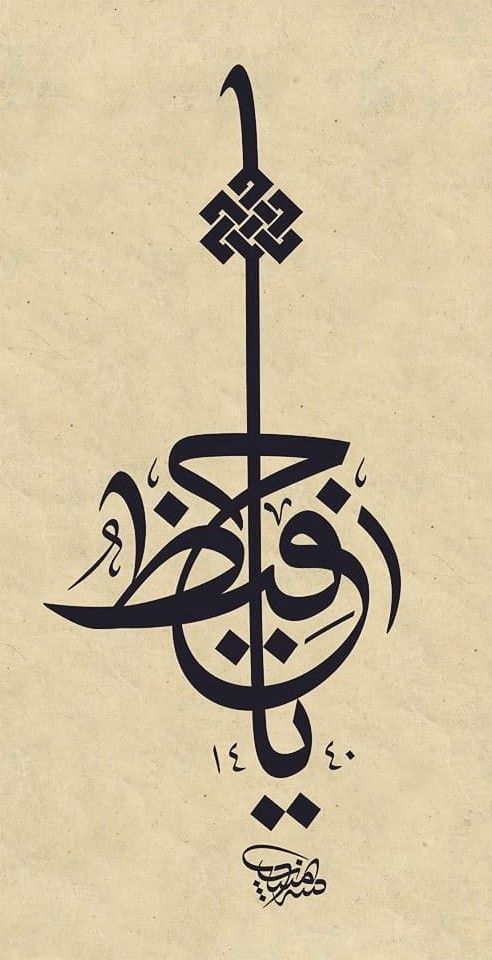 يا حفيظ
١٤٤٠